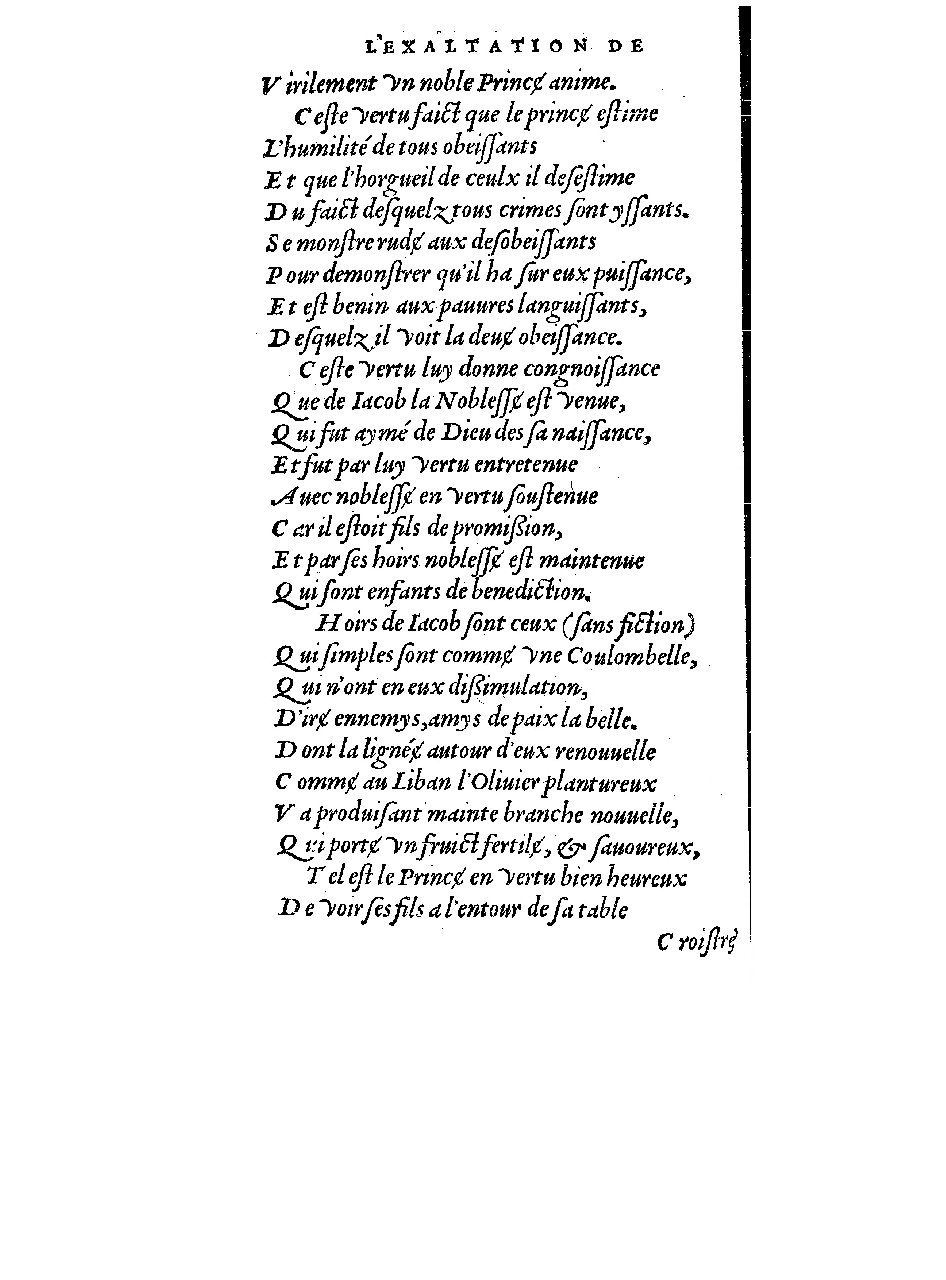 L'EXALTATION DE
Virilement vn noble Princé anime.
Ceste vertu faict que le princé estime
L'humilité de tous obeissants
Et que l'horgueil de ceulx il desestime
Du faict desquelz tous crimes sont yssants.
Se monstre rudé aux desobeissants
Pour demonstrer qu'il ha sur eux puissance,
Et est benin aux pauures languissants,
Desquelz il voit la deué obeissance.
Ceste vertu luy donne congnoissance
Que de Iacob la Noblessé est venue,
Qui fut aymé de Dieu des sa naissance,
Et fut par luy vertu entretenue
Auec noblessé en vertu soustenue
Car il estoit fils de promission,
Et par ses hoirs noblessé est maintenue
Qui sont enfants de benediction.
Hoirs de Iacob sont ceux (sans fiction)
Qui simples sont commé vne Coulombelle,
Qui n'ont en eux dissimulation,
D'iré ennemys, amys de paix la belle.
Dont la lignéé autour d'eux renouuelle
Commé au Liban l'Oliuier plantureux
Va produisant mainte branche nouuelle,
Qui porté vn fruict fertilé, & sauoureux,
Tel est le Princé en vertu bien heureux
De voir ses fils a l'entour de sa table
Croistré